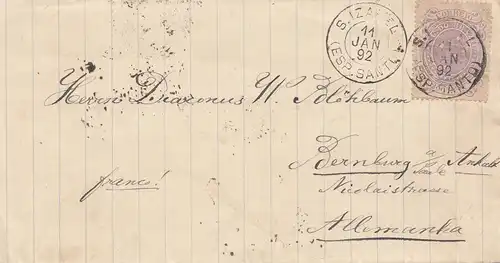 S. IZABEL
11
JAN
92
(ESP. SANTO)
CORREIO
S. I
11
JAN
92
(ESP. SANTO)
Herrn Diaconus W. Blöhbaum
Bernburg a/Saale Anhalt
franco!
Nicolaistrasse
Allemanha